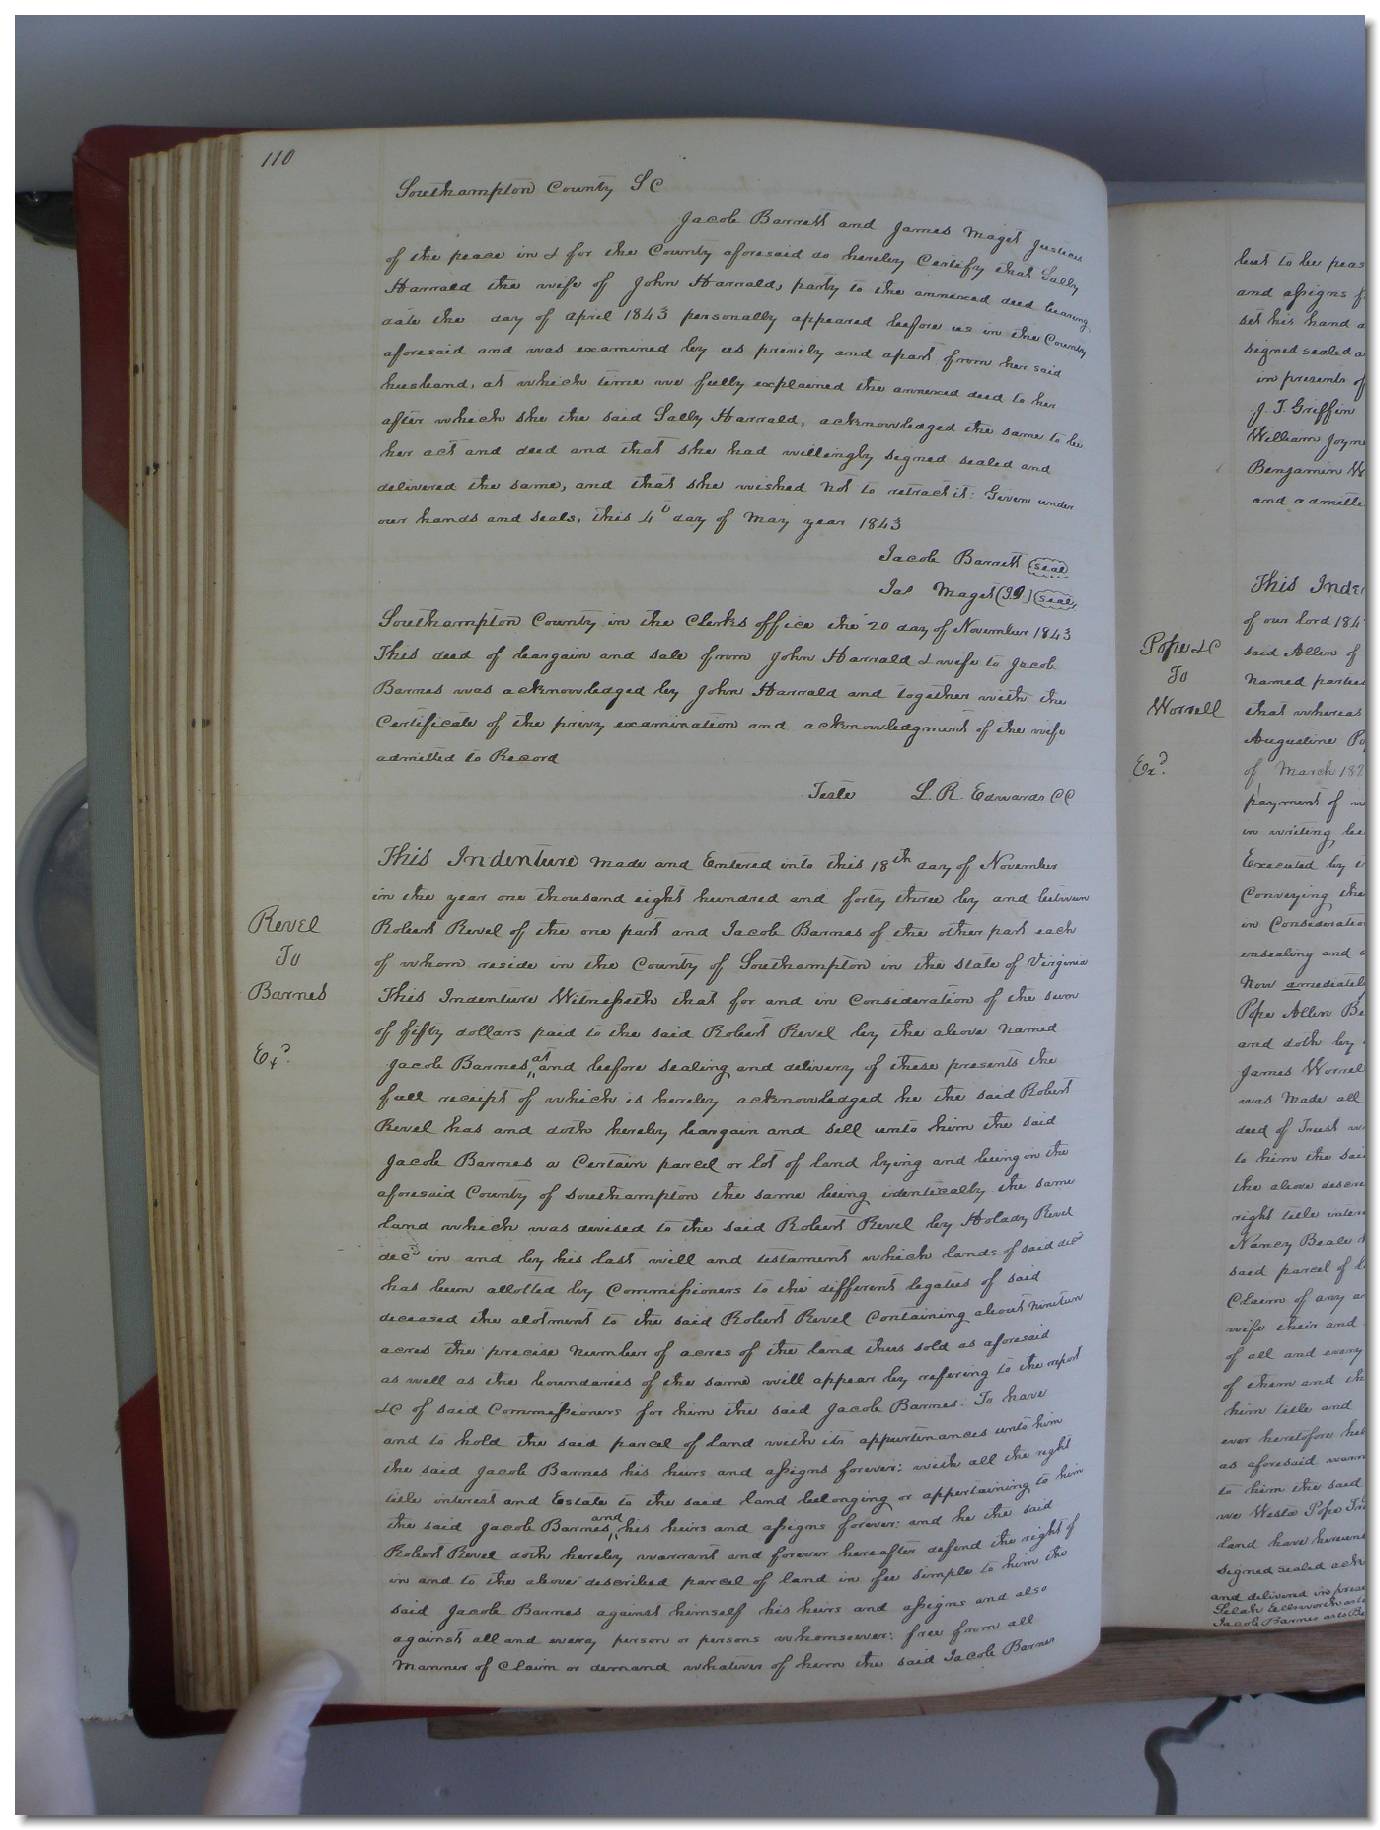 110
Southampton County SC
Jacob Barrett and James Maget Justices
of the peace in & for the County aforesaid do hereby Certify that Sally
Harrald the wife of John Harrald, party to the annexed deed bearing
date the day of April 1843 personally appeared before us in the County
aforesaid and was examined by us privily and apart from her said
husband, at which time we fully explained the annexed deed to her
after which she the said Sally Harrald, acknowledged the same to be
her act and deed and that she had willingly signed sealed and
delivered the same, and that she wished not to retract it: Given under
our hands and seals, this 4th day of May year 1843
Jacob Barrett (seal)
Jas Maget (seal)
Southampton County in the Clerks office the 20 day of November 1843
This deed of bargain and sale from John Harrald & wife to Jacob
Barnes was acknowledged by John Harrald and together with the
Certificate of the privy examination and acknowledgment of the wife
admitted to Record
Teste L. R. Edwards CC
Revel
To
Barnes
Exd.
This Indenture made and Entered into this 18th day of November
in the year one thousand eight hundred and forty three by and between
Robert Revel of the one part and Jacob Barnes of the other part each
of whom reside in the County of Southampton in the state of Virginia
This Indenture Witnesseth that for and in Consideration of the sum
of fifty dollars paid to the said Robert Revel by the above named
Jacob Barnes, at and before sealing and delivery of these presents the
full receipt of which is hereby acknowledged he the said Robert
Revel has and doth hereby bargain and sell unto him the said
Jacob Barnes a Certain parcel or lot of land lying and being in the
aforesaid County of Southampton the same being identically the same
land which was devised to the said Robert Revel by Holady Revel
decd in and by his last will and testament which lands of said decd
has been allotted by Commissioners to the different legatees of said
deceased the alotment to the said Robert Revel Containing about nineteen
acres the precise number of acres of the land thus sold as aforesaid
as well as the boundaries of the same will appear by refering to the report
&C of said Commissioners for him the said Jacob Barnes. To have
and to hold the said parcel of land with its appurtenances unto him
the said Jacob Barnes his heirs and assigns forever: with all the right
title interest and Estate to the said land belonging or appertaining to him
the said Jacob Barnes and his heirs and assigns forever: and he the said
Robert Revel doth hereby warrant and forever hereafter defend the right of
in and to the above described parcel of land in fee simple to him the
said Jacob Barnes against himself his heirs and assigns and also
against all and every person or persons whomsoever: free from all
Manner of Claim or demand whatever of him the said Jacob Barnes
Pope &C
To
Worrell
Exd.
and assigns
set his hand
signed sealed
in presents of
J. T. Griffin
William
Benjamin
This
of our lord 184
said Allen of
named parties
that whereas
Augustine
of March 182
payment of
in writing
Executed by
Conveying the
in Consideration
ensealing and
Now amediately
Pope Allen
and doth by
James Worrell
was Made all
deed of Trust
to him the
the above
right title
Nancy Beale
said parcel of
Claim of any
wife their and
of all and every
of them and
him title and
ever heretofore
as aforesaid
to him the said
we Pope
land have
signed sealed
and delivered in
Selah Ellsworth
Jacob Barnes